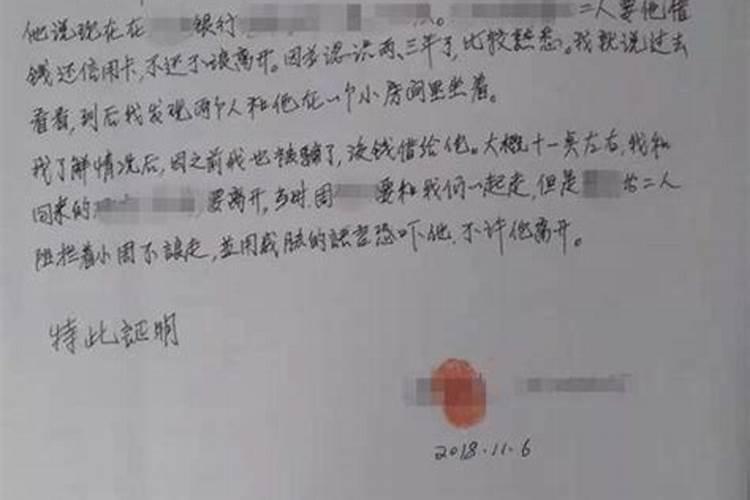 他说现在在 银行 。 二人要他借
钱还信用卡,不还不讓离开。因为認识两、三年了,比较熟悉。我就说过去
看看,到后我发现两个人和他在一个小房间里坐着。
我了解情况后,因之前我也被骗了,没钱借给他。大概十一点左右,我和
同来的 要离开,当时周 要和我们一起走,但是 等二人
阻拦着小周不讓走,並用威脉的語言恐吓他,不许他离开。
特此証明
2018.11.6